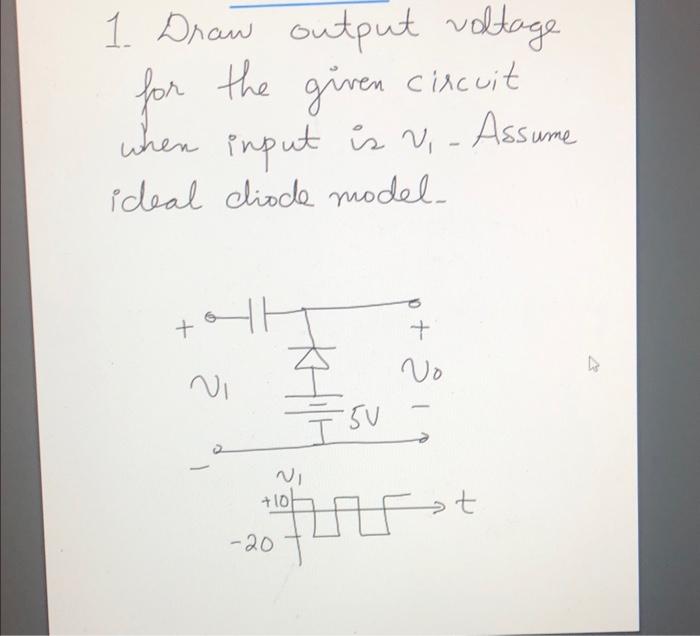 1. Draw output voltage
for the given circuit
when input is v₁ - Assume
ideal diode model-
+ +
v₁ v₀
5V -
-
v₁
+10 t
-20